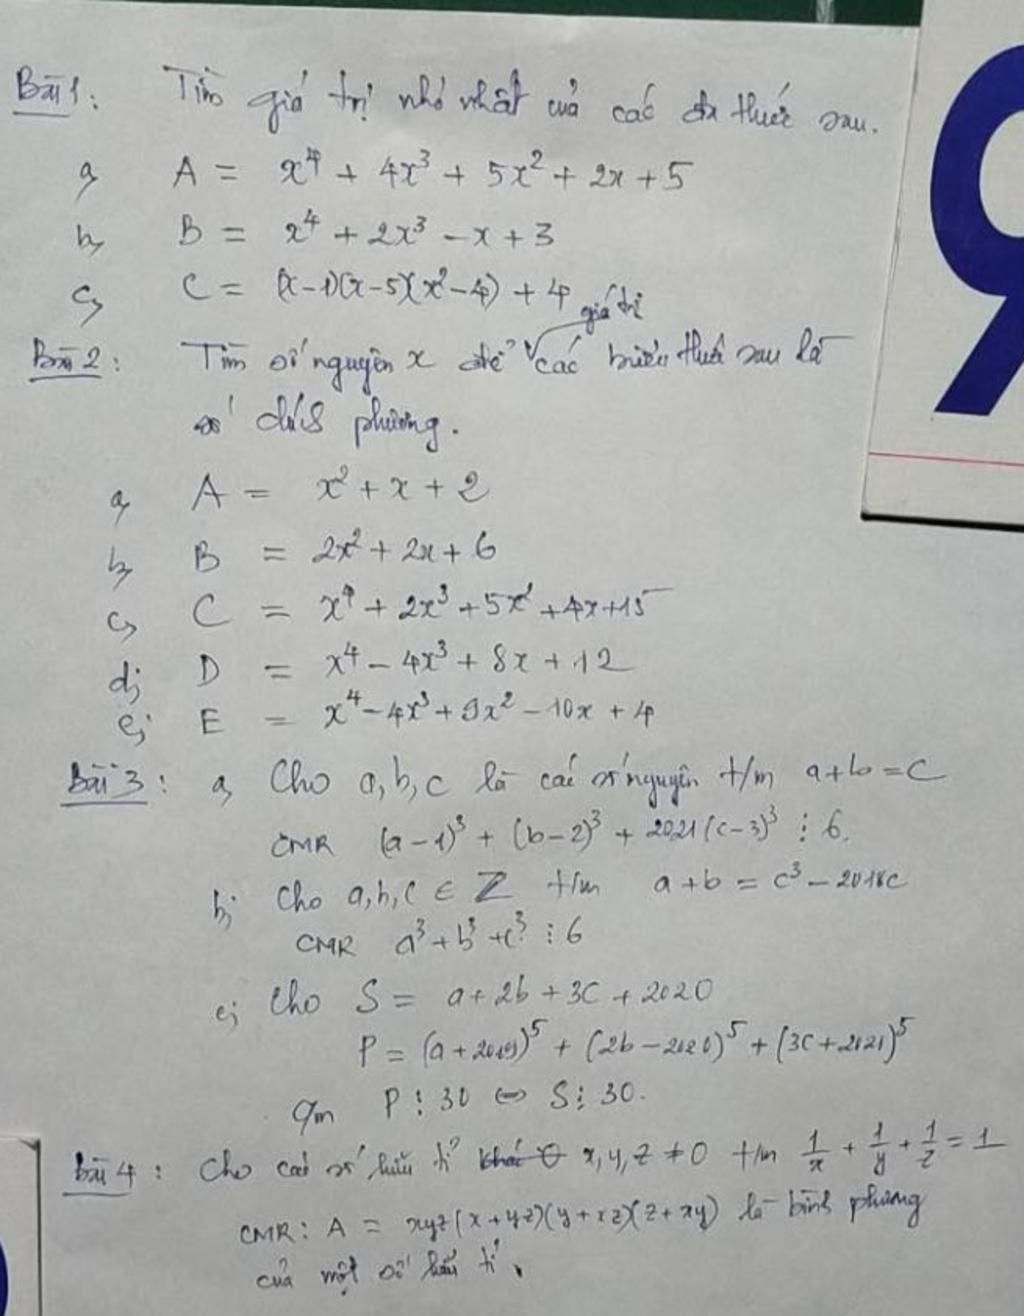 Bài 1: Tìm giá trị nhỏ nhất của các đa thức sau.
a, A = x⁴ + 4x³ + 5x² + 2x + 5
b, B = x⁴ + 2x³ - x + 3
c, C = (x-1)(x-5)(x²-4) + 4
giá trị
Bài 2: Tìm số nguyên x để các biểu thức sau là
số chính phương.
a, A = x² + x + 2
b, B = 2x² + 2x + 6
c, C = x⁴ + 2x³ + 5x² + 4x + 15
d; D = x⁴ - 4x³ + 8x + 12
e; E = x⁴ - 4x³ + 9x² - 10x + 4
Bài 3: a, Cho a, b, c là các số nguyên t/m a+b=c
CMR (a-1)³ + (b-2)³ + 2021(c-3)³ ⋮ 6.
b; Cho a,b,c ∈ Z t/m a+b = c³ - 2018c
CMR a³ + b³ + c³ ⋮ 6
c; Cho S = a + 2b + 3c + 2020
P = (a+2019)⁵ + (2b-2020)⁵ + (3c+2021)⁵
Cm P ⋮ 30 ⇔ S ⋮ 30.
Bài 4: Cho các số hữu tỉ khác 0 x, y, z ≠ 0 t/m 1/x + 1/y + 1/z = 1
CMR: A = xyz(x+yz)(y+xz)(z+xy) là bình phương
của một số hữu tỉ.
9